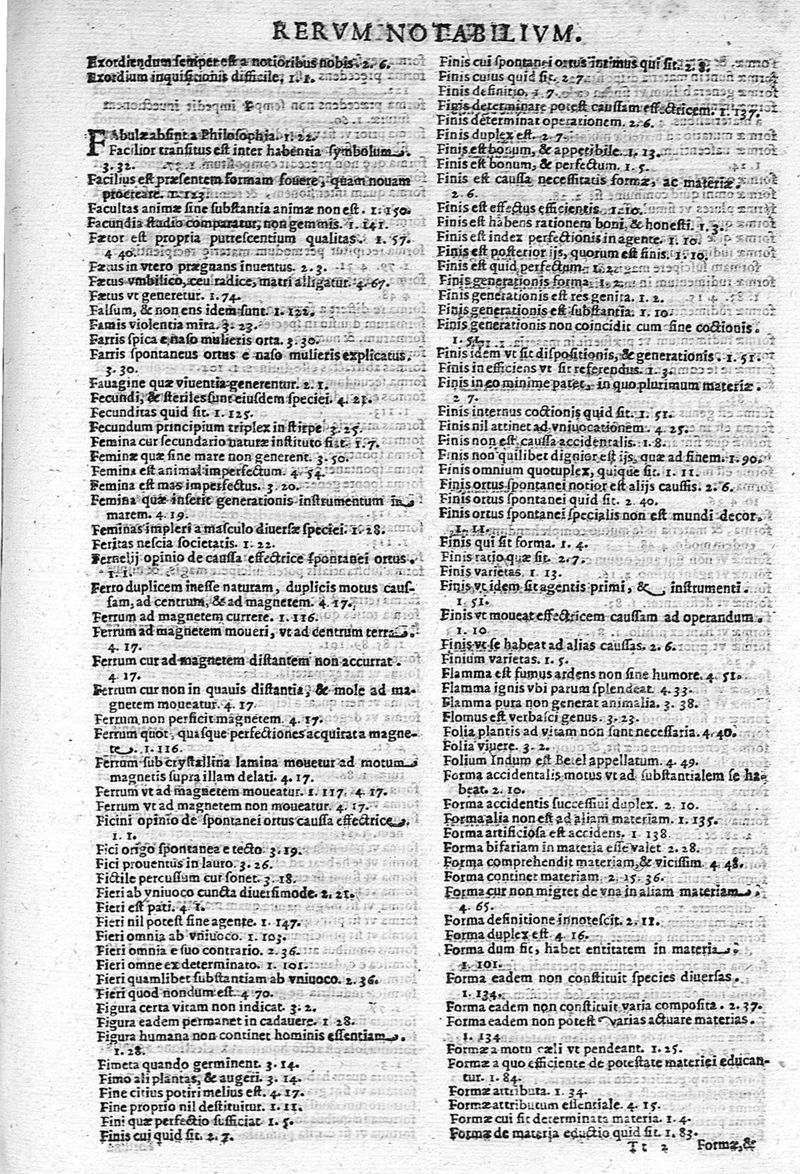 RERVM NOTABILIVM.
Exordiendum semper est a notioribus nobis. 2. 6.
Exordium inquisitionis difficile, 1. 1.
FAbulæ absint a Philosophia. 1. 22.
Facilior transitus est inter habentia symbolum.
3. 32.
Facilius est præsentem formam fouere, quam nouam
procreare. 1. 123.
Facultas animæ sine substantia animæ non est. 1. 150.
Facundia studio comparatur, non gemmis. 1. 141.
Fætor est propria putrescentium qualitas. 1. 57.
4 40.
Fætus in vtero prægnans inuentus. 2. 3.
Fætus vmbilico, ceu radice, matri alligatur. 4. 67.
Fætus vt generetur. 1. 74.
Falsum, & non ens idem sunt. 1. 122.
Famis violentia mira. 3. 23.
Farris spica e naso mulieris orta. 3. 30.
Farris spontaneus ortus e naso mulieris explicatus.
3. 30.
Fauagine quæ viuentia generentur. 2. 1.
Fecundi, & steriles sunt eiusdem speciei. 4. 21.
Fecunditas quid sit. 1. 125.
Fecundum principium triplex in stirpe. 3. 25.
Femina cur secundario naturæ instituto fiat. 1. 7.
Feminæ quæ sine mare non generent. 3. 50.
Femina est animal imperfectum. 4. 54.
Femina est mas imperfectus. 3. 20.
Feminæ quæ inserit generationis instrumentum in
marem. 4. 19.
Feminas impleri a masculo diuersæ speciei. 1. 28.
Feritas nescia societatis. 1. 22.
Fernelij opinio de caussa effectrice spontanei ortus.
1. 1.
Ferro duplicem inesse naturam, duplicis motus caus-
sam, ad centrum, & ad magnetem. 4. 17.
Ferrum ad magnetem currere. 1. 116.
Ferrum ad magnetem moueri, vt ad centrum terra.
4. 17.
Ferrum cur ad magnetem distantem non accurrat.
4. 17.
Ferrum cur non in quauis distantia, & mole ad ma-
gnetem moueatur. 4. 17.
Ferrum non perficit magnetem. 4. 17.
Ferrum quot, quasque perfectiones acquirat a magne-
te. 1. 116.
Ferrum sub crystallina lamina mouetur ad motum
magnetis supra illam delati. 4. 17.
Ferrum vt ad magnetem moueatur. 1. 117. 4. 17.
Ferrum vt ad magnetem non moueatur. 4. 17.
Ficini opinio de spontanei ortus caussa effectrice.
1. 1.
Fici origo spontanea e tecto. 3. 19.
Fici prouentus in lauro. 3. 26.
Fictile percussum cur sonet. 3. 18.
Fieri ab vniuoco cuncta diuersimode. 2. 21.
Fieri est pati. 4. 1.
Fieri nil potest sine agente. 1. 147.
Fieri omnia ab vniuoco. 1. 103.
Fieri omnia e suo contrario. 2. 36.
Fieri omne ex determinato. 1. 101.
Fieri quamlibet substantiam ab vniuoco. 2. 36.
Fieri quod nondum est. 4 70.
Figura certa vitam non indicat. 3. 2.
Figura eadem permanet in cadauere. 1 28.
Figura humana non continet hominis essentiam.
1. 28.
Fimeta quando germinent. 3. 14.
Fimo ali plantas, & augeri. 3. 14.
Fine citius potiri melius est. 4. 17.
Fine proprio nil destituitur. 1. 11.
Fini quæ perfectio sufficiat 1. 5.
Finis cui quid sit. 2. 7.
Finis cui spontanei ortus intimus qui sit. 2. 8.
Finis cuius quid sit. 2. 7.
Finis definitio. 1. 7.
Finis determinare potest caussam effectricem. 1. 137.
Finis determinat operationem. 2. 6.
Finis duplex est. 2. 7.
Finis est bonum, & appetibile. 1. 13.
Finis est bonum, & perfectum. 1. 5.
Finis est caussa necessitatis formæ, ac materiæ.
2. 6.
Finis est effectus efficientis. 1. 10.
Finis est habens rationem boni, & honesti. 1. 3.
Finis est index perfectionis in agente. 1. 10.
Finis est posterior ijs, quorum est finis. 1. 10.
Finis est quid perfectum. 1. 2.
Finis generationis forma. 1. 2.
Finis generationis est res genita. 1. 2.
Finis generationis est substantia. 1. 10.
Finis generationis non coincidit cum fine coctionis.
1. 51.
Finis idem vt sit dispositionis, & generationis. 1. 51.
Finis in efficiens vt sit referendus. 1. 3.
Finis in eo minime patet, in quo plurimum materiæ.
2 7.
Finis internus coctionis quid sit. 1. 51.
Finis nil attinet ad vniuocationem. 4. 25.
Finis non est caussa accidentalis. 1. 8.
Finis non quilibet dignior est ijs, quæ ad finem. 1. 90.
Finis omnium quotuplex, quique sit. 1. 11.
Finis ortus spontanei notior est alijs caussis. 2. 6.
Finis ortus spontanei quid sit. 2. 40.
Finis ortus spontanei specialis non est mundi decor.
1. 11.
Finis qui sit forma. 1. 4.
Finis ratio quæ sit. 2. 7.
Finis varietas. 1. 13.
Finis vt idem sit agentis primi, & instrumenti.
1. 51.
Finis vt moueat effectricem caussam ad operandum.
1. 10
Finis vt se habeat ad alias caussas. 2. 6.
Finium varietas. 1. 5.
Flamma est fumus ardens non sine humore. 4. 51.
Flamma ignis vbi parum splendeat. 4. 33.
Flamma pura non generat animalia. 3. 38.
Flomus est verbasci genus. 3. 23.
Folia plantis ad vitam non sunt necessaria. 4. 40.
Folia viuere. 3. 2.
Folium Indum est Betel appellatum. 4. 49.
Forma accidentalis motus vt ad substantialem se ha-
beat. 2. 10.
Forma accidentis successiui duplex. 2. 10.
Forma alia non est ad aliam materiam. 1. 135.
Forma artificiosa est accidens. 1 138.
Forma bifariam in materia esse valet. 2. 28.
Forma comprehendit materiam, & vicissim. 4. 48.
Forma continet materiam. 2. 15. 36.
Forma cur non migret de vna in aliam materiam.
4. 65.
Forma definitione innotescit. 2. 11.
Forma duplex est. 4. 16.
Forma dum fit, habet entitatem in materia.
1. 101.
Forma eadem non constituit species diuersas.
1. 134.
Forma eadem non constituit varia composita. 2. 37.
Forma eadem non potest varias actuare materias.
1. 134
Formæ a motu cæli vt pendeant. 1. 25.
Formæ a quo efficiente de potestate materiei educan-
tur. 1. 84.
Formæ attributa. 1. 34.
Formæ attributum essentiale. 4. 15.
Formæ cui sit determinata materia. 1. 4.
Formæ de materia eductio quid sit. 1. 83.
Tt 2 Formæ, &